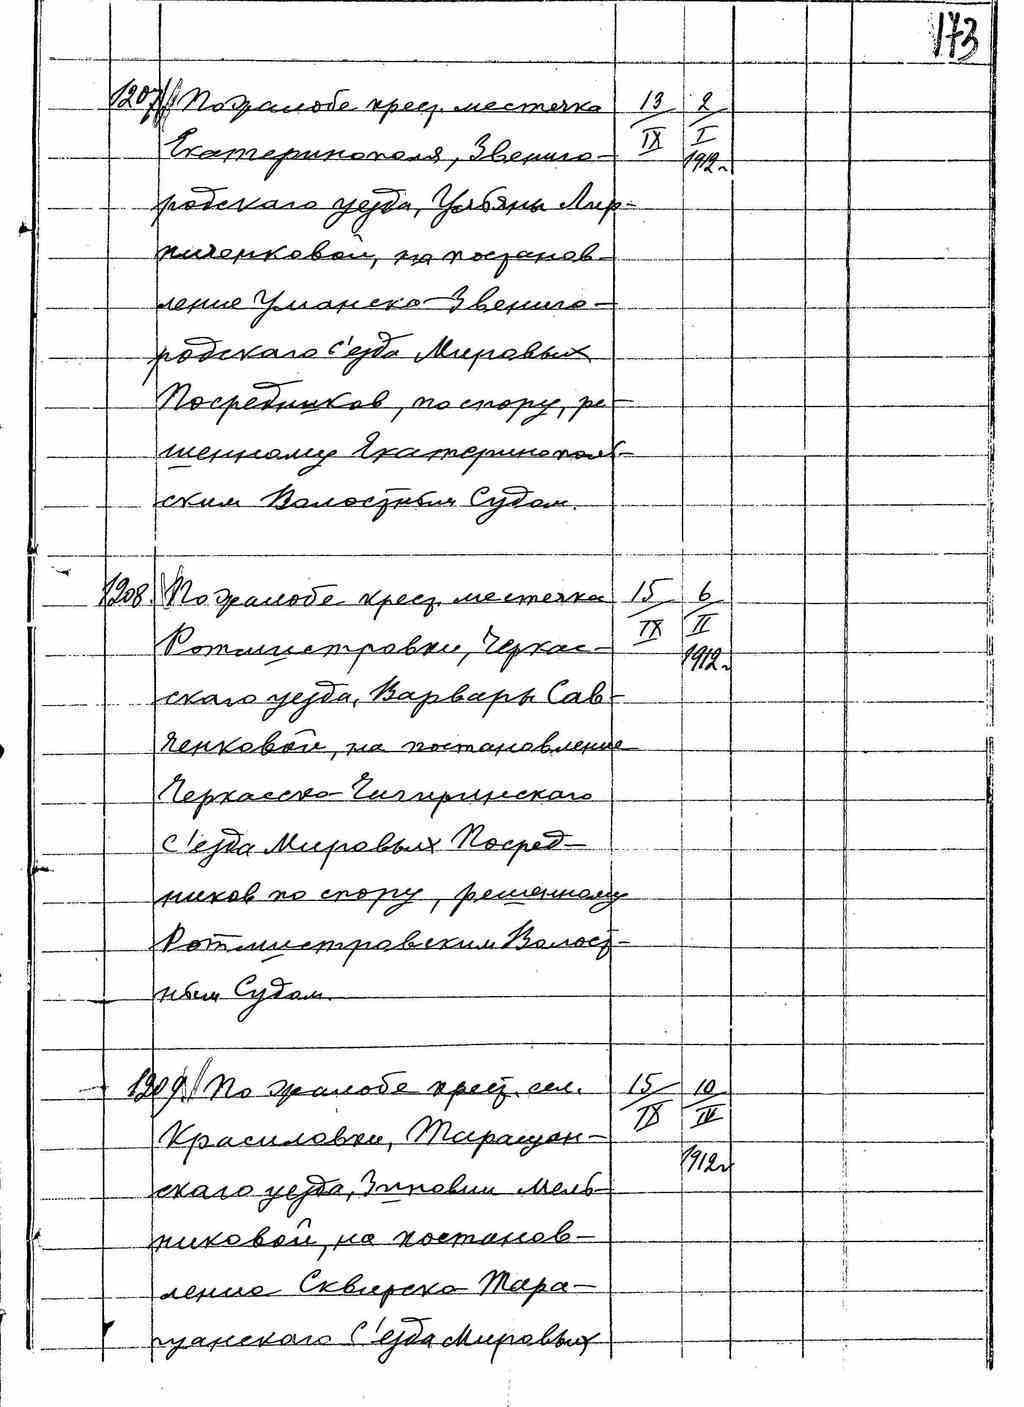 173
1207 По жалобе крест. местечка 13/IX 2/I
Екатеринополя, Звениго- 1912 г.
родского уезда, Ульяны Лир-
ниченковой, на постанов-
ление Уманско-Звениго-
родского С'езда Мировых
Посредников, по спору, ре-
шенному Екатеринополь-
ским Волостным Судом.
1208. По жалобе крест. местечка 15/IX 6/II
Ротмистровки, Черкас- 1912 г.
скаго уезда, Варвары Сав-
ченковой, на постановление
Черкасско-Чигиринскаго
С'езда Мировых Посред-
ников по спору, решенному
Ротмистровским Волост-
ным Судом.
1209 По жалобе крест. сел. 15/IX 10/IV
Красиловки, Таращан-
скаго уезда, Зиновии Мель- 1912 г
никовой, на постанов-
ление Сквирско-Тара-
щанскаго С'езда Мировых